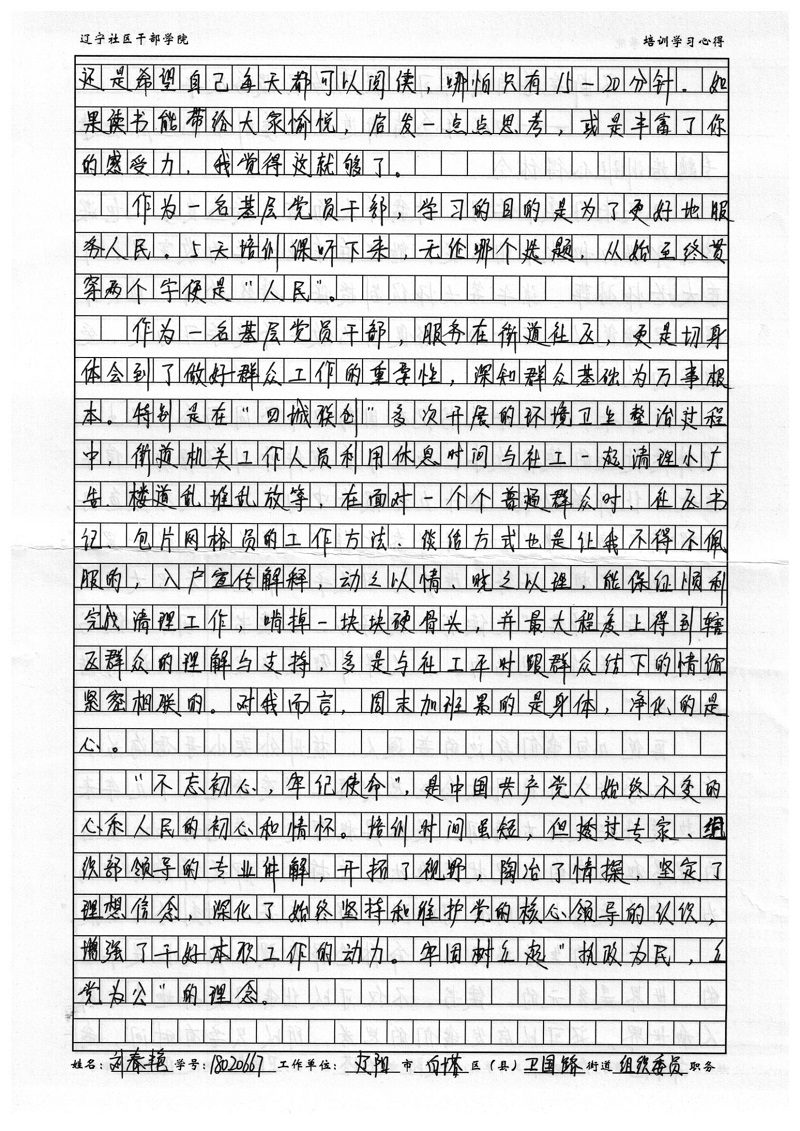 辽宁社区干部学院 培训学习心得
还是希望自己每天都可以阅读，哪怕只有15-20分钟。如
果读书能带给大家愉悦，启发一点点思考，或是丰富了你
的感受力，我觉得这就够了。
作为一名基层党员干部，学习的目的是为了更好地服
务人民。5天培训课听下来，无论哪个选题，从始至终贯
穿两个字便是"人民"。
作为一名基层党员干部，服务在街道社区，更是切身
体会到了做好群众工作的重要性，深知群众基础为万事根
本。特别是在"四城联创"多次开展的环境卫生整治过程
中，街道机关工作人员利用休息时间与社工一起清理小广
告、楼道乱堆乱放等，在面对一个个普通群众时，社区书
记、包片网格员的工作方法、谈话方式也是让我不得不佩
服的，入户宣传解释，动之以情，晓之以理，能保证顺利
完成清理工作，啃掉一块块硬骨头，并最大程度上得到辖
区群众的理解与支持，多是与社工平时跟群众结下的情谊
紧密相联的。对我而言，周末加班累的是身体，净化的是
心。
"不忘初心，牢记使命"，是中国共产党人始终不变的
心系人民的初心和情怀。培训时间虽短，但接过专家、组
织部领导的专业件解，开拓了视野，陶冶了情操，坚定了
理想信念，深化了始终坚持和维护党的核心领导的认识，
增强了干好本职工作的动力。牢固树立起"执政为民，立
党为公"的理念。
姓名：刘春艳 学号：18020667 工作单位：辽阳 市 白塔 区（县）卫国路 街道 组织委员 职务